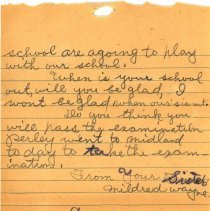 school are agoing to play
with our school.
When is your school
out, will you be glad, I
wont be glad when ours is out.
Do you think you
will pass the examination
Perley went to midland
to day to take the exam-
ination.
From Your Sister
Mildred Wayne.